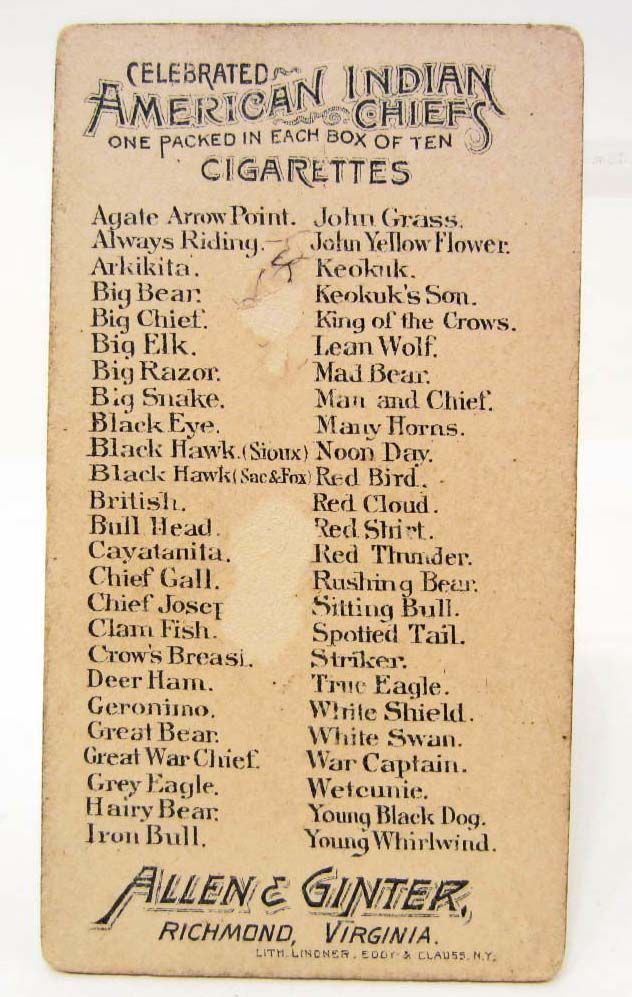 CELEBRATED
AMERICAN INDIAN
CHIEFS
ONE PACKED IN EACH BOX OF TEN
CIGARETTES
Agate Arrow Point.
Always Riding.
Arkikita.
Big Bear.
Big Chief.
Big Elk.
Big Razor.
Big Snake.
Black Eye.
Black Hawk.(Sioux)
Black Hawk(Sac&Fox)
British.
Bull Head.
Cayatanita.
Chief Gall.
Chief Josep
Clam Fish.
Crow's Breast.
Deer Ham.
Geronimo.
Great Bear.
Great War Chief.
Grey Eagle.
Hairy Bear.
Iron Bull.
John Grass.
John Yellow Flower.
Keokuk.
Keokuk's Son.
King of the Crows.
Lean Wolf.
Mad Bear.
Man and Chief.
Many Horns.
Noon Day.
Red Bird.
Red Cloud.
Red Shirt.
Red Thunder.
Rushing Bear.
Sitting Bull.
Spotted Tail.
Striker.
True Eagle.
White Shield.
White Swan.
War Captain.
Wetcunie.
Young Black Dog.
Young Whirlwind.
ALLEN & GINTER,
RICHMOND, VIRGINIA.
LITH. LINDNER, EDDY & CLAUSS, N.Y.